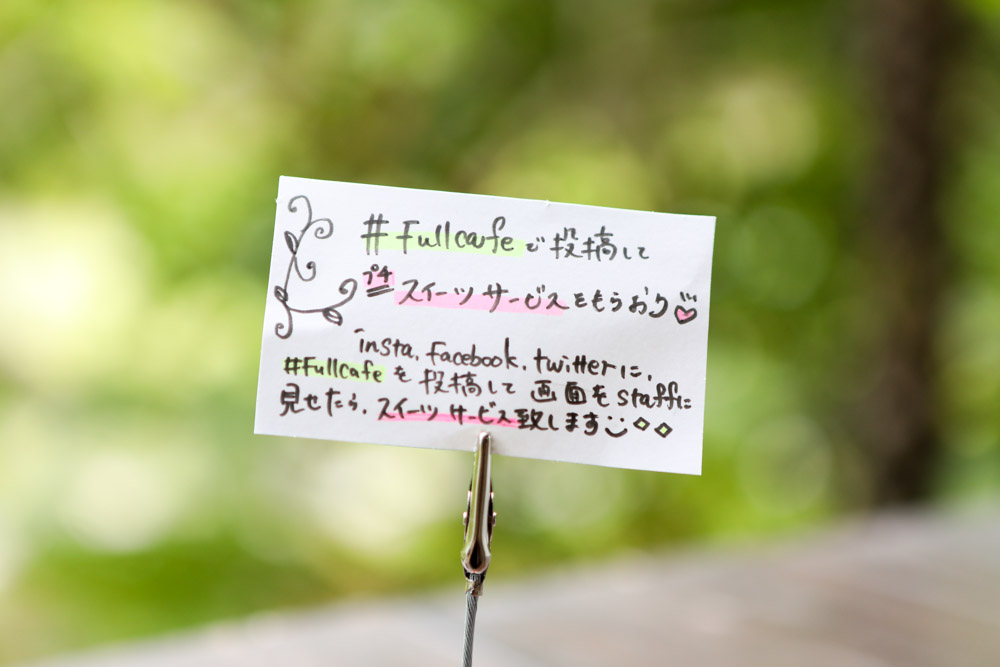 #Fullcafeで投稿して
プチ スイーツサービスをもらおう
insta, Facebook, twitterに、
#Fullcafeを投稿して 画面をstaffに
見せたら、スイーツサービス致します